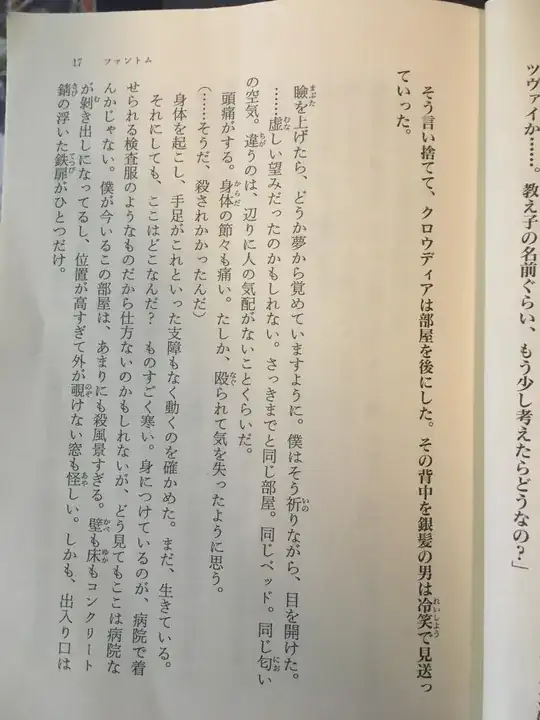 ツヴァイか……。教え子の名前ぐらい、もう少し考えたらどうなの？」
そう言い捨てて、クロウディアは部屋を後にした。その背中を銀髪の男は冷笑で見送っ
ていった。
瞼を上げたら、どうか夢から覚めていますように。僕はそう祈りながら、目を開けた。
……虚しい望みだったのかもしれない。さっきまでと同じ部屋。同じベッド。同じ匂い
の空気。違うのは、辺りに人の気配がないことくらいだ。
頭痛がする。身体の節々も痛い。たしか、殴られて気を失ったように思う。
（……そうだ、殺されかかったんだ）
身体を起こし、手足がこれといった支障もなく動くのを確かめた。まだ、生きている。
それにしても、ここはどこなんだ？　ものすごく寒い。身につけているのが、病院で着
せられる検査服のようなものだから仕方ないのかもしれないが、どう見てもここは病院な
んかじゃない。僕が今いるこの部屋は、あまりにも殺風景すぎる。壁も床もコンクリート
が剝き出しになってるし、位置が高すぎて外が覗けない窓も怪しい。しかも、出入り口は
錆の浮いた鉄扉がひとつだけ。
17　ファントム